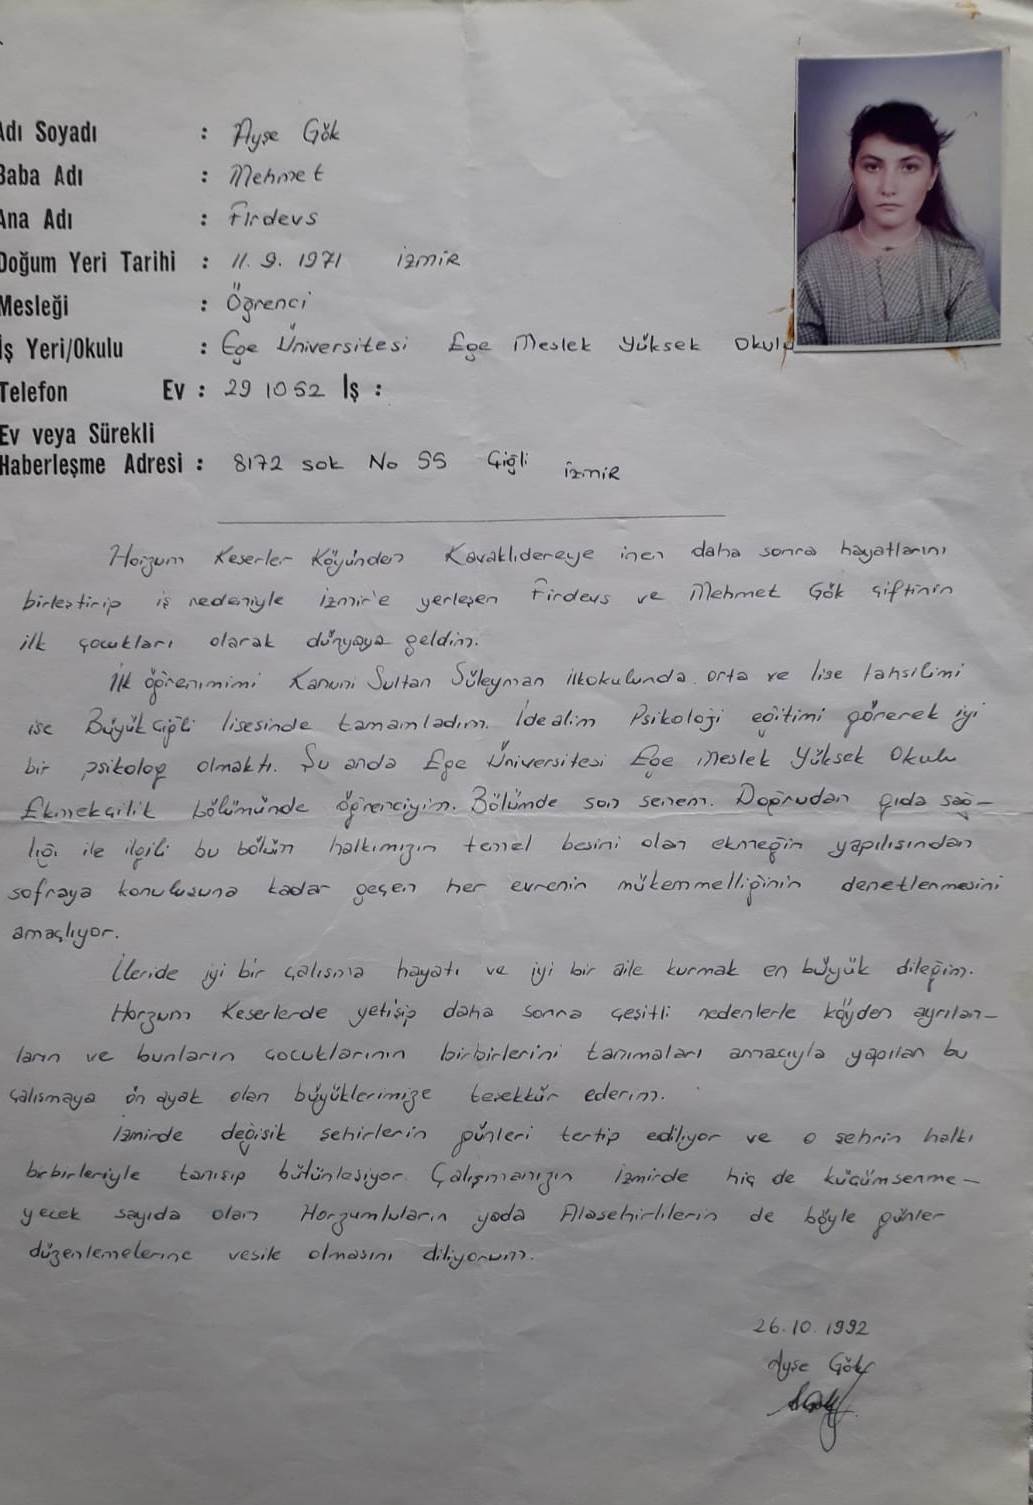 Adı Soyadı : Ayşe Gök
Baba Adı : Mehmet
Ana Adı : Firdevs
Doğum Yeri Tarihi : 11. 9. 1971 İzmir
Mesleği : Öğrenci
İş Yeri/Okulu : Ege Üniversitesi Ege Meslek Yüksek Okulu
Telefon Ev : 29 10 52 İş :
Ev veya Sürekli
Haberleşme Adresi : 8172 sok No 55 Çiğli İzmir
Horzum Keserler Köyünden Kavaklıdereye inen daha sonra hayatlarını
birleştirip iş nedeniyle İzmir'e yerleşen Firdevs ve Mehmet Gök çiftinin
ilk çocukları olarak dünyaya geldim.
İlk öğrenimimi Kanuni Sultan Süleyman ilkokulunda. orta ve lise tahsilimi
ise Büyük Çiğli lisesinde tamamladım. İdealim Psikoloji eğitimi görerek iyi
bir psikolog olmaktı. Şu anda Ege Üniversitesi Ege Meslek Yüksek Okulu
Ekmekçilik bölümünde öğrenciyim. Bölümde son senem. Doğrudan gıda sağ-
lığı ile ilgili bu bölüm halkımızın temel besini olan ekmeğin yapılışından
sofraya konulusuna kadar geçen her evrenin mükemmelliğinin denetlenmesini
amaçlıyor.
İleride iyi bir çalışma hayatı ve iyi bir aile kurmak en büyük dileğim.
Horzum Keserlerde yetişip daha sonra çeşitli nedenlerle köyden ayrılan-
ların ve bunların çocuklarının birbirlerini tanımaları amacıyla yapılan bu
çalışmaya ön ayak olan büyüklerimize teşekkür ederim.
İzmirde değişik şehirlerin günleri tertip ediliyor ve o şehrin halkı
birbirleriyle tanışıp bütünleşiyor. Çalışmanızın İzmirde hiç de küçümsenme-
yecek sayıda olan Horzumluların yada Alaşehirlilerin de böyle günler
düzenlemelerine vesile olmasını diliyorum.
26.10.1992
Ayşe Gök